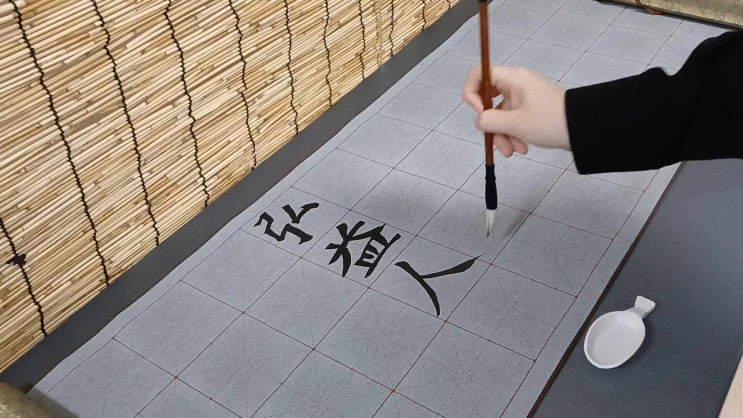 弘益人